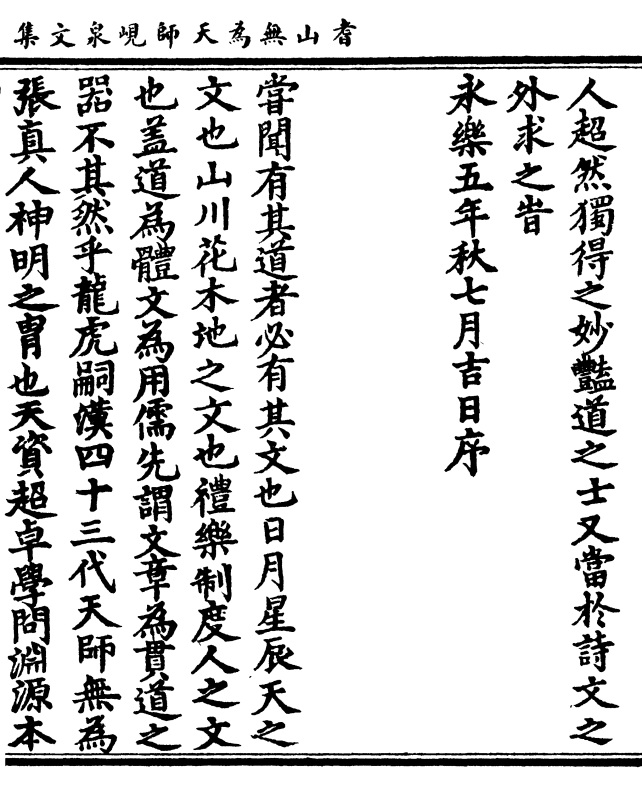 耆山無為天師峴泉文集
人超然獨得之妙豔道之士又當於詩文之
外求之旹
永樂五年秋七月吉日序
甞聞有其道者必有其文也日月星辰天之
文也山川花木地之文也禮樂制度人之文
也盖道為體文為用儒先謂文章為貫道之
器不其然乎龍虎嗣漢四十三代天師無為
張真人神明之胄也天資超卓學問淵源本